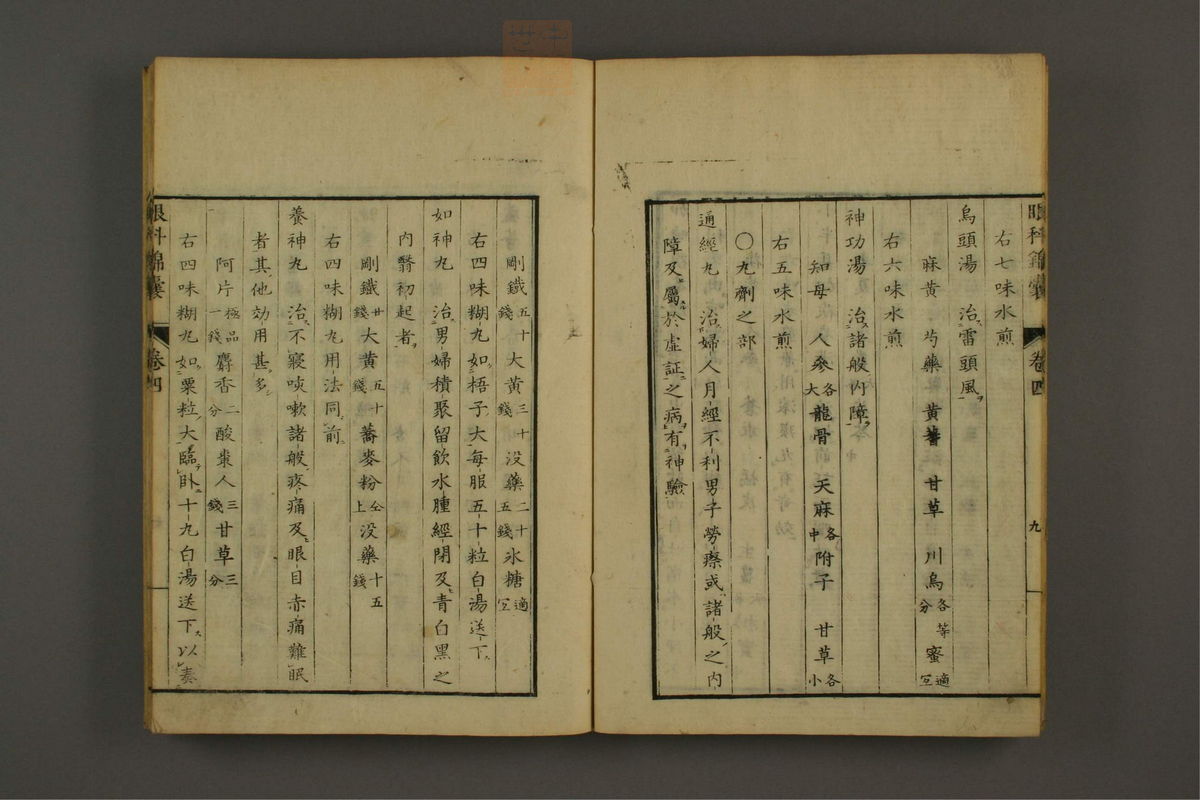 右七味水煎
烏頭湯　治雷頭風
麻黄　芍藥　黄耆　甘草　川烏各等分　蜜適宜
右六味水煎
神功湯　治諸般内障
知母　人參各大　龍骨　天麻各中　附子　甘草各小
右五味水煎
〇丸劑之部
通經丸　治婦人月經不利男子勞瘵或諸般之内
障及屬於虛証之病有神驗
眼科錦囊　卷四　九
剛鐵五十錢　大黄三十錢　没藥二十五錢　氷糖適宜
右四味糊丸如梧子大每服五十粒白湯送下
如神丸　治男婦積聚留飲水腫經閉及青白黑之
内翳初起者
剛鐵廿錢　大黄五十錢　蕎麥粉仝上　没藥十五錢
右四味糊丸用法同前
養神丸　治不寢咳嗽諸般疼痛及眼目赤痛難眠
者其他効用甚多
阿片極品一錢　麝香二分　酸棗人三錢　甘草三分
右四味糊丸如粟粒大臨臥十丸白湯送下以奏
眼科錦囊　卷四